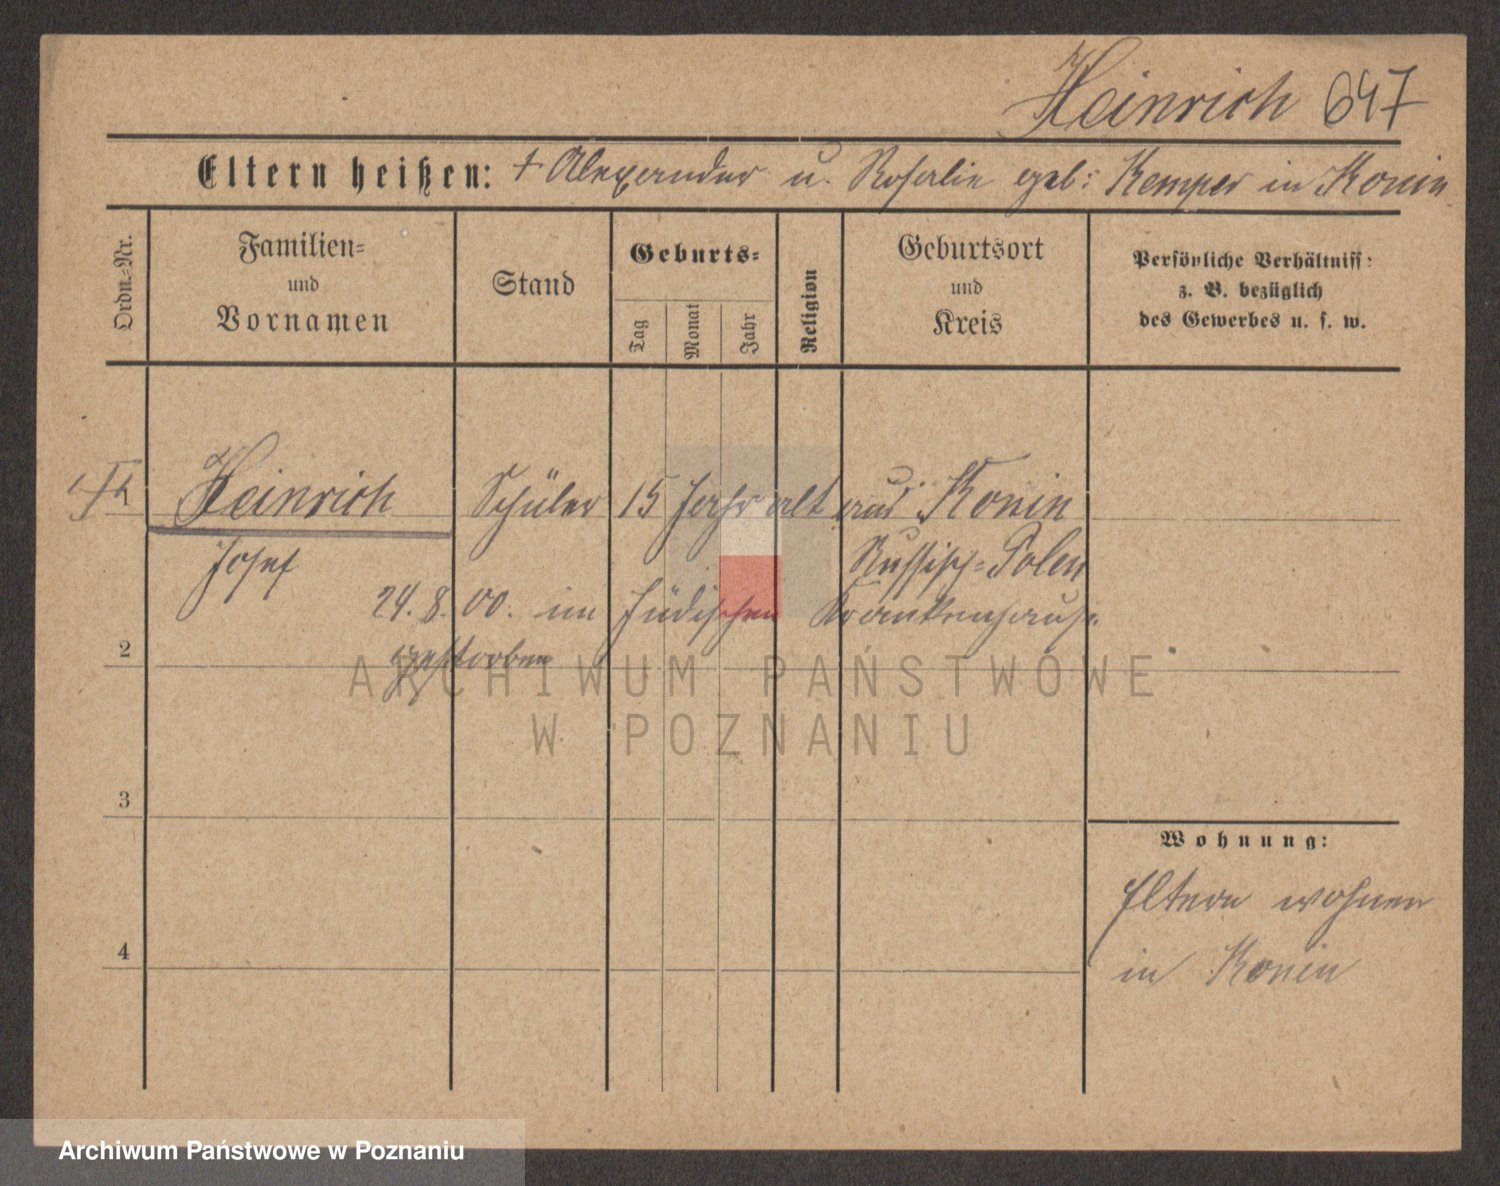 Heinrich 647
Eltern heißen: + Alexander u. Rosalie geb: Kemper in Konin
Ordn.-Nr.
Familien-
und
Vornamen
Stand
Geburts-
Tag
Monat
Jahr
Religion
Geburtsort
und
Kreis
Persönliche Verhältniss:
z. B. bezüglich
des Gewerbes u. s. w.
Heinrich Schüler 15 Jahr alt aus Konin
Josef Russisch-Polen
24.8.00. im jüdischen Krankenhause
2 gestorben
ARCHIWUM PAŃSTWOWE
W POZNANIU
3
Wohnung:
Eltern wohnen
4
in Konin
Archiwum Państwowe w Poznaniu